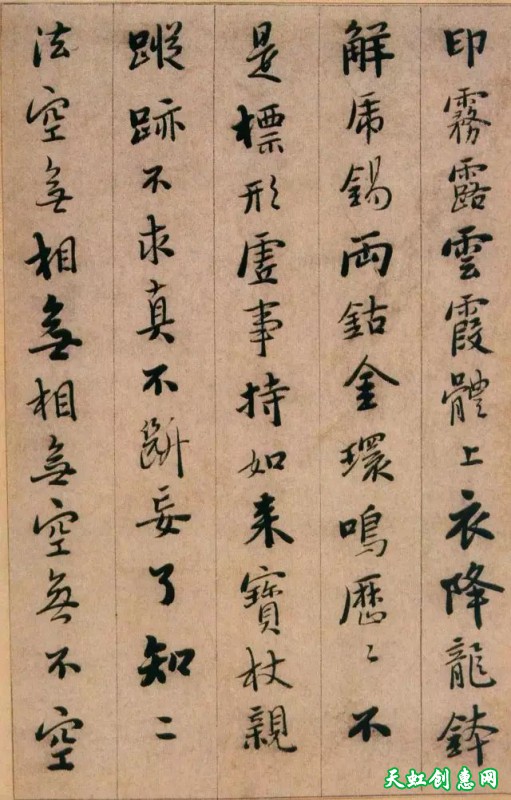 印霧露雲霞體上衣降龍鉢
解虎錫兩鈷金環鳴歷〻不
是標形虛事持如来寶杖親
蹤跡不求真不斷妄了知二
法空無相無相無空無不空
天虹创惠网